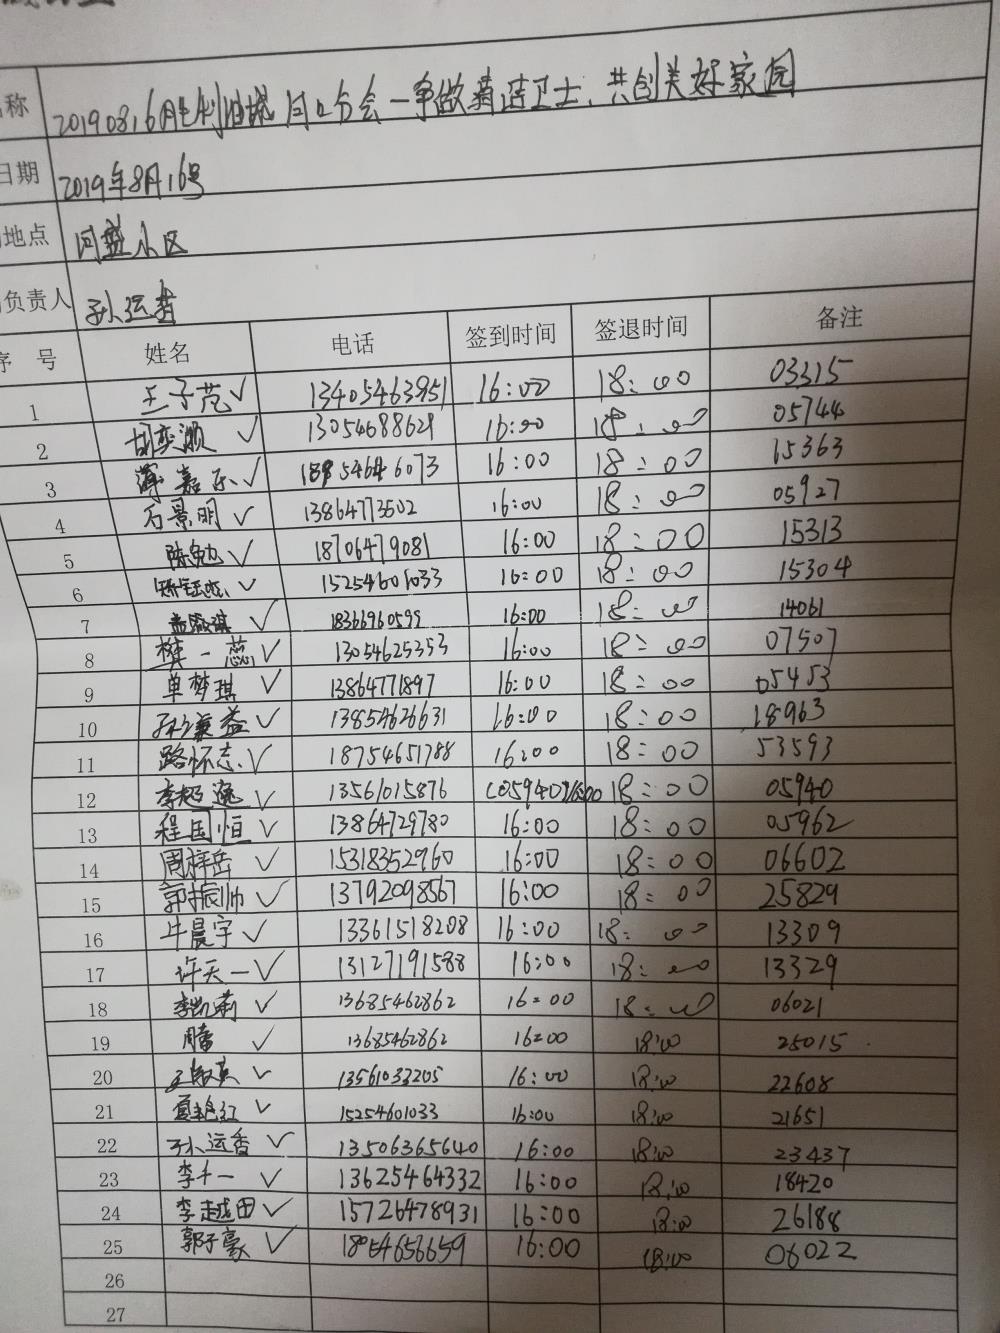 称 20190816胜利油城河口分会一争做清洁卫士、共创美好家园
日期 2019年8月16号
地点 河盛小区
负责人 孙运香
序号 姓名 电话 签到时间 签退时间 备注
1 王子范✓ 13405463951 16:00 18:00 03315
2 胡奕灏✓ 13054688629 16:00 18:00 05744
3 薄嘉乐✓ 18954646073 16:00 18:00 15363
4 石景明✓ 13864773502 16:00 18:00 05927
5 陈勉✓ 18706479081 16:00 18:00 15313
6 ✓ 15254601033 16:00 18:00 15304
7 ✓ 18366960599 16:00 18:00 14061
8 樊一蕊✓ 13054625353 16:00 18:00 07507
9 单梦琪✓ 13864771897 16:00 18:00 05453
10 ✓ 13854626631 16:00 18:00 18963
11 路怀志✓ 18754651788 16:00 18:00 53593
12 李超逸✓ 13561015876 (05940)16:00 18:00 05940
13 程国恒✓ 13864729780 16:00 18:00 05962
14 周梓岳✓ 15318352960 16:00 18:00 06602
15 郭振帅✓ 13792098567 16:00 18:00 25829
16 牛晨宇✓ 13361518208 16:00 18:00 13309
17 许天一✓ 13127191588 16:00 18:00 13329
18 李凯莉✓ 13685462862 16:00 18:00 06021
19 ✓ 13685462862 16:00 18:00 25015
20 ✓ 13561033205 16:00 18:00 22608
21 夏艳红✓ 15254601033 16:00 18:00 21651
22 孙运香✓ 13506365640 16:00 18:00 23437
23 李十一✓ 13625464332 16:00 18:00 18420
24 李越田✓ 15726478931 16:00 18:00 26188
25 郭子豪✓ 18954656659 16:00 18:00 06022
26
27